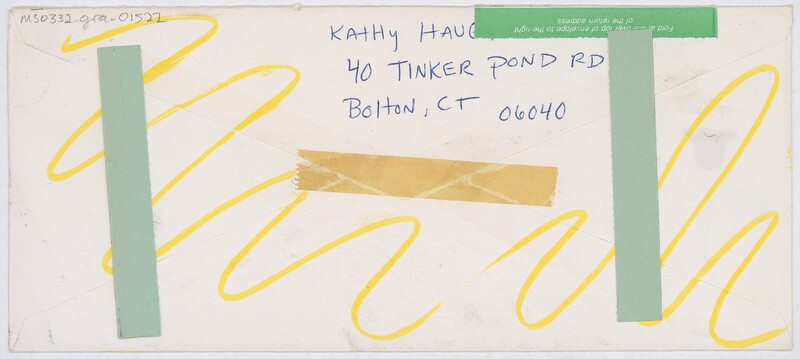 MS0332-gra-01522
Fold at line over top of envelope to the right
of the return address
KATHY HAUG
40 TINKER POND RD
BOLTON, CT 06040